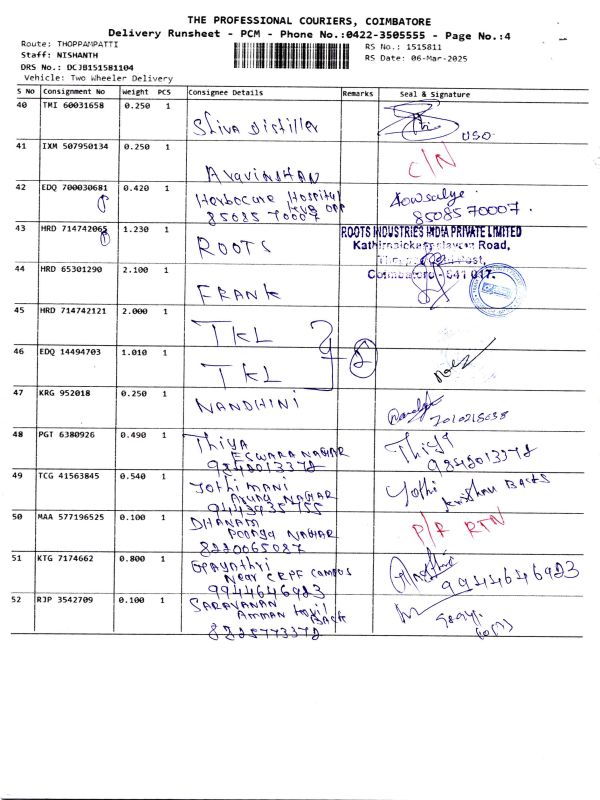 THE PROFESSIONAL COURIERS, COIMBATORE
Delivery Runsheet - PCM - Phone No.:0422-3505555 - Page No.:4
Route: THOPPAMPATTI
RS No.: 1515811
Staff: NISHANTH
RS Date: 06-Mar-2025
DRS No.: DCJB151581104
Vehicle: Two Wheeler Delivery
S No Consignment No Weight PCS Consignee Details Remarks Seal & Signature
40 TMI 60031658 0.250 1
Shiva Distiller
41 IXM 507950134 0.250 1
C/N
Aravinthan
42 EDQ 700030681 0.420 1
Hospital
1
opp
8508570007
8508570007
43 HRD 714742065 1.230 1
1
ROOTS
ROOTS INDUSTRIES INDIA PRIVATE LIMITED
Road,
Post,
Coimbatore - 641 017.
44 HRD 65301290 2.100 1
FRANK
45 HRD 714742121 2.000 1
TKL
46 EDQ 14494703 1.010 1
2
TKL
47 KRG 952018 0.250 1
NANDHINI
48 PGT 6380926 0.490 1
Thiya
ESWARA NAGAR
9842013372
Thiya
9842013372
49 TCG 41563845 0.540 1
Jothimani
NAGAR
Jothi
50 MAA 577196525 0.100 1
DHANAM
NAGAR
8220065087
P/R RTN
51 KTG 7174662 0.800 1
Gayathri
Near CRPF campus
9944646923
9944646923
52 RJP 3542709 0.100 1
SARAVANAN
Amman Kovil
Back